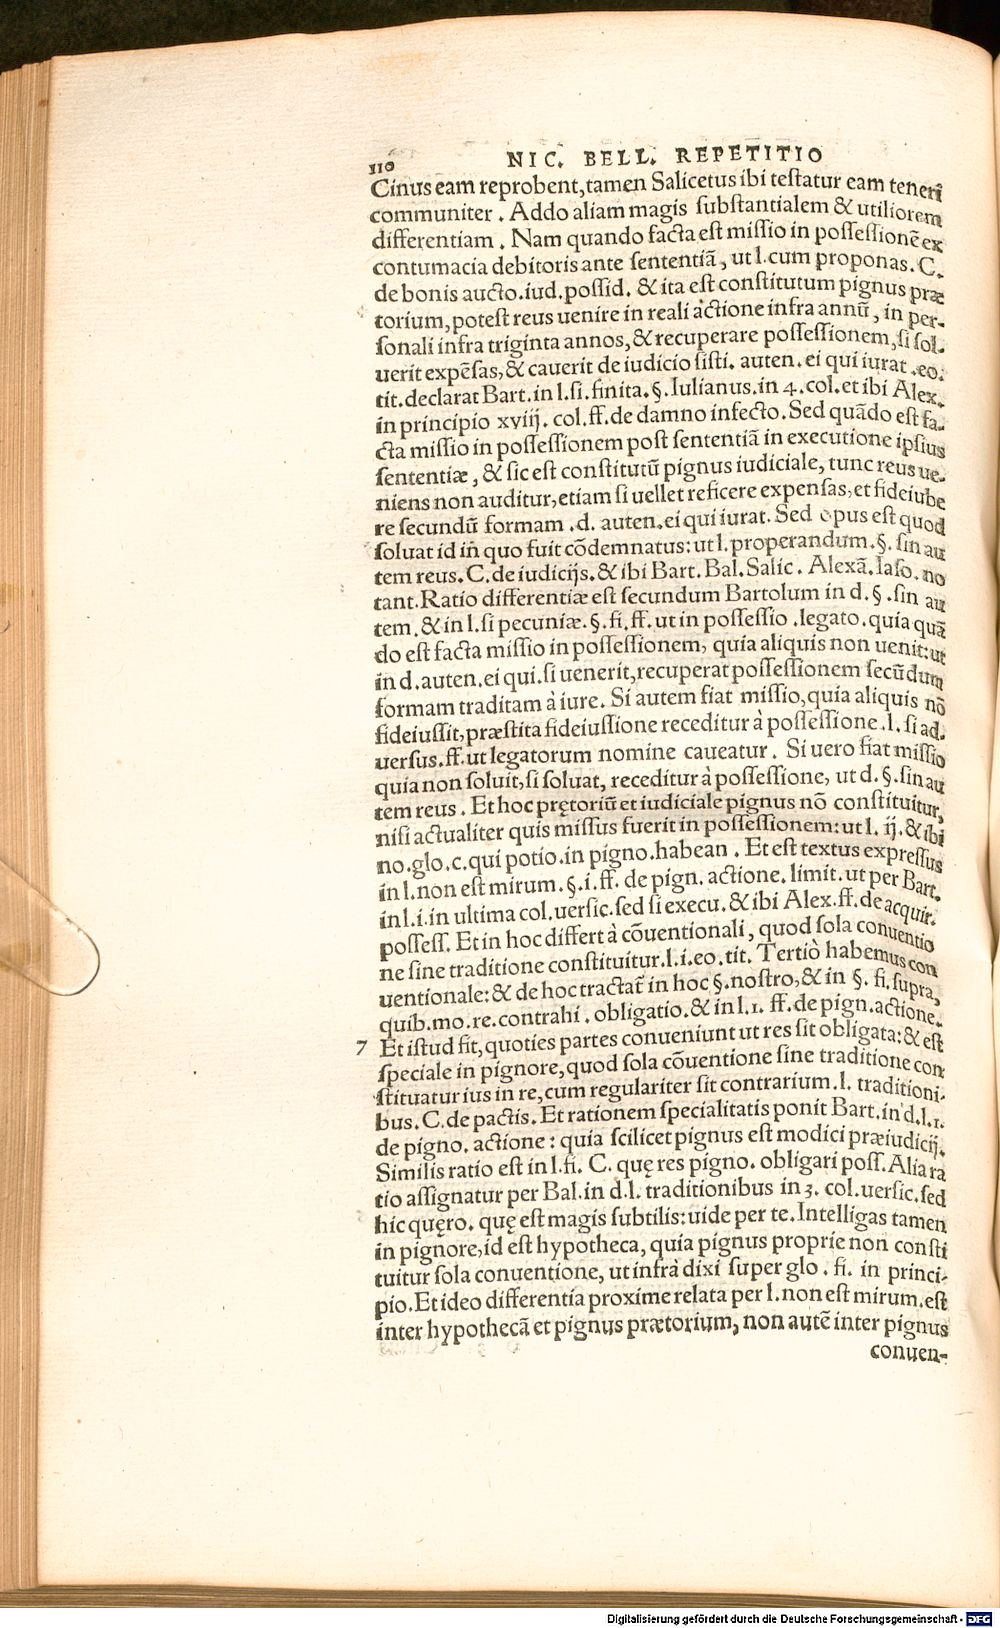 110 NIC. BELL. REPETITIO
Cinus eam reprobent, tamen Salicetus ibi testatur eam teneri
communiter. Addo aliam magis substantialem & utiliorem
differentiam. Nam quando facta est missio in possessionē ex
contumacia debitoris ante sententiā, ut l. cum proponas. C.
de bonis aucto. iud. possid. & ita est constitutum pignus præ
torium, potest reus uenire in reali actione infra annū, in per-
sonali infra triginta annos, & recuperare possessionem, si sol-
uerit expēsas, & cauerit de iudicio sisti. auten. ei qui iurat .eo.
tit. declarat Bart. in l. si. finita. §. Iulianus. in 4. col. et ibi Alex.
in principio xviij. col. ff. de damno infecto. Sed quādo est fa-
cta missio in possessionem post sententiā in executione ipsius
sententiæ, & sic est constitutū pignus iudiciale, tunc reus ue-
niens non auditur, etiam si uellet reficere expensas, et fideiube
re secundū formam .d. auten. ei qui iurat. Sed opus est quod
soluat id in quo fuit cōdemnatus: ut l. properandum. §. sin au
tem reus. C. de iudicijs. & ibi Bart. Bal. Salic. Alexā. Iaso. no
tant. Ratio differentiæ est secundum Bartolum in d. §. sin au
tem. & in l. si pecuniæ. §. fi. ff. ut in possessio .legato. quia quā
do est facta missio in possessionem, quia aliquis non uenit: ut
in d. auten. ei qui. si uenerit, recuperat possessionem secūdum
formam traditam à iure. Si autem fiat missio, quia aliquis nō
fideiussit, præstita fideiussione receditur à possessione .l. si ad-
uersus. ff. ut legatorum nomine caueatur. Si uero fiat missio
quia non soluit, si soluat, receditur à possessione, ut d. §. sin au
tem reus. Et hoc prętoriū et iudiciale pignus nō constituitur,
nisi actualiter quis missus fuerit in possessionem: ut l. ij. & ibi
no. glo. c. qui potio. in pigno. habean. Et est textus expressus
in l. non est mirum. §. i. ff. de pign. actione. limit. ut per Bart.
in l. i. in ultima col. uersic. sed si execu. & ibi Alex. ff. de acquir.
possess. Et in hoc differt à cōuentionali, quod sola conuentio
ne sine traditione constituitur. l. i. eo. tit. Tertiò habemus con
uentionale: & de hoc tractat̄ in hoc §. nostro, & in §. fi. supra,
quib. mo. re. contrahi. obligatio. & in l. 1. ff. de pign. actione.
7 Et istud fit, quoties partes conueniunt ut res sit obligata: & est
speciale in pignore, quod sola cōuentione sine traditione con
stituatur ius in re, cum regulariter sit contrarium. l. traditioni-
bus. C. de pactis. Et rationem specialitatis ponit Bart. in d. l. 1.
de pigno. actione: quia scilicet pignus est modici præiudicij.
Similis ratio est in l. fi. C. quę res pigno. obligari poss. Alia ra
tio assignatur per Bal. in d. l. traditionibus in 3. col. uersic. sed
hic quęro. quę est magis subtilis: uide per te. Intelligas tamen
in pignore, id est hypotheca, quia pignus proprie non consti
tuitur sola conuentione, ut infrà dixi super glo. fi. in princi-
pio. Et ideo differentia proxime relata per l. non est mirum. est
inter hypothecā et pignus prætorium, non autē inter pignus
conuen-
Digitalisierung gefördert durch die Deutsche Forschungsgemeinschaft - DFG